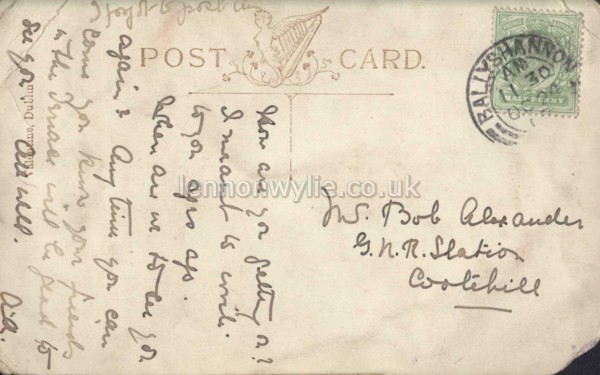 POST CARD.
BALLYSHANNON
AM
11 30
HALFPENNY
lennonwylie.co.uk
Mr. Bob Alexander
G.N.R. Station
Cootehill
How are you getting on?
I meant to write
to you ages ago.
When are we to see you
again? Any time you can
come you know your friends
in the will be glad to
see you All well.
Dublin
forgot to post